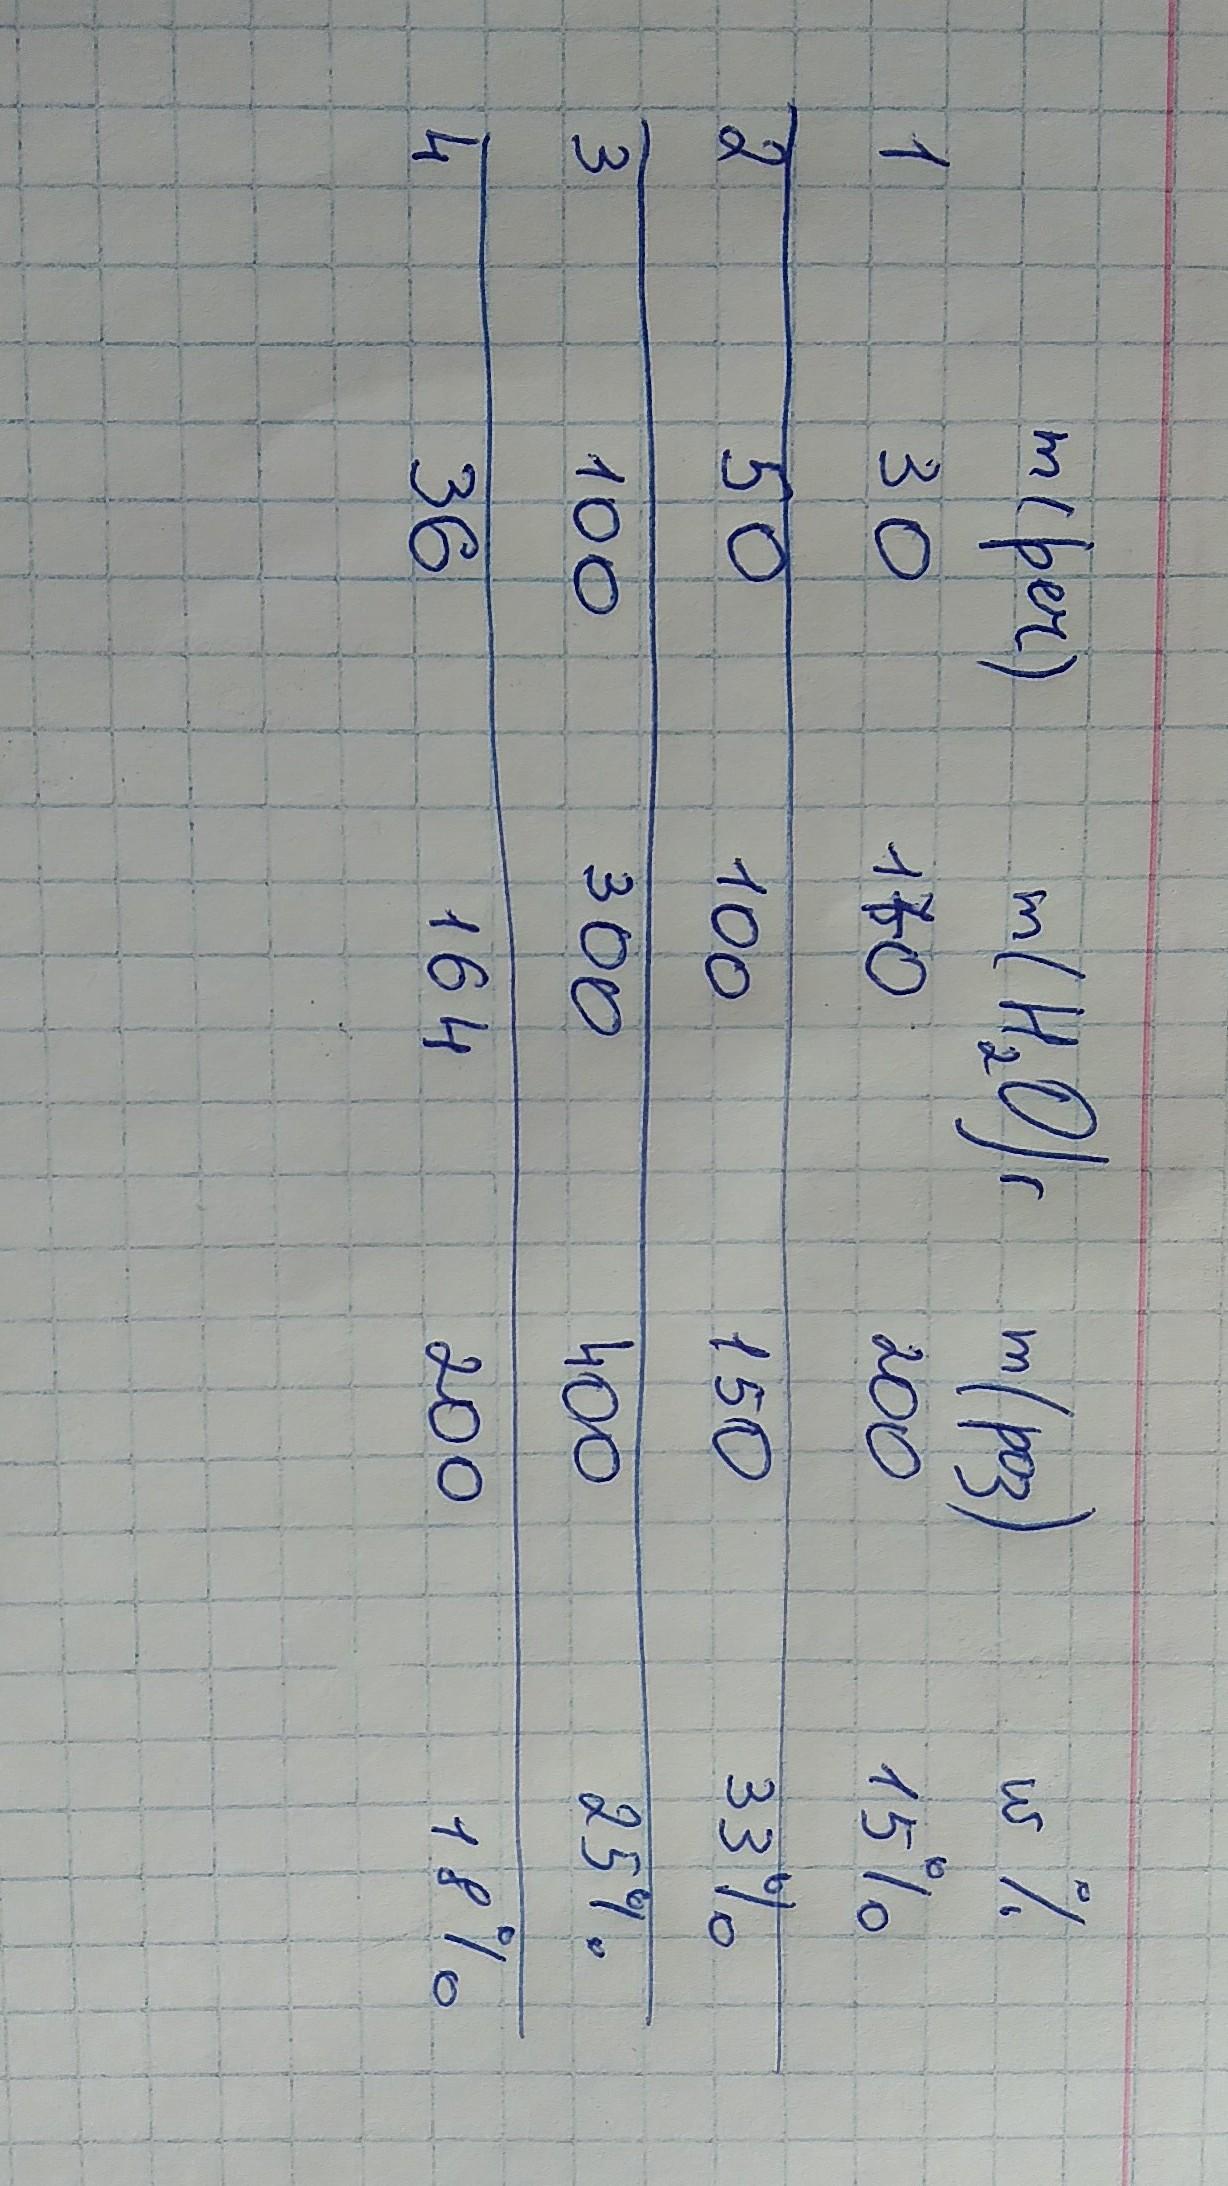 m(реч) m(H₂O)г m(роз) w %
1 30 170 200 15%
2 50 100 150 33%
3 100 300 400 25%
4 36 164 200 18%